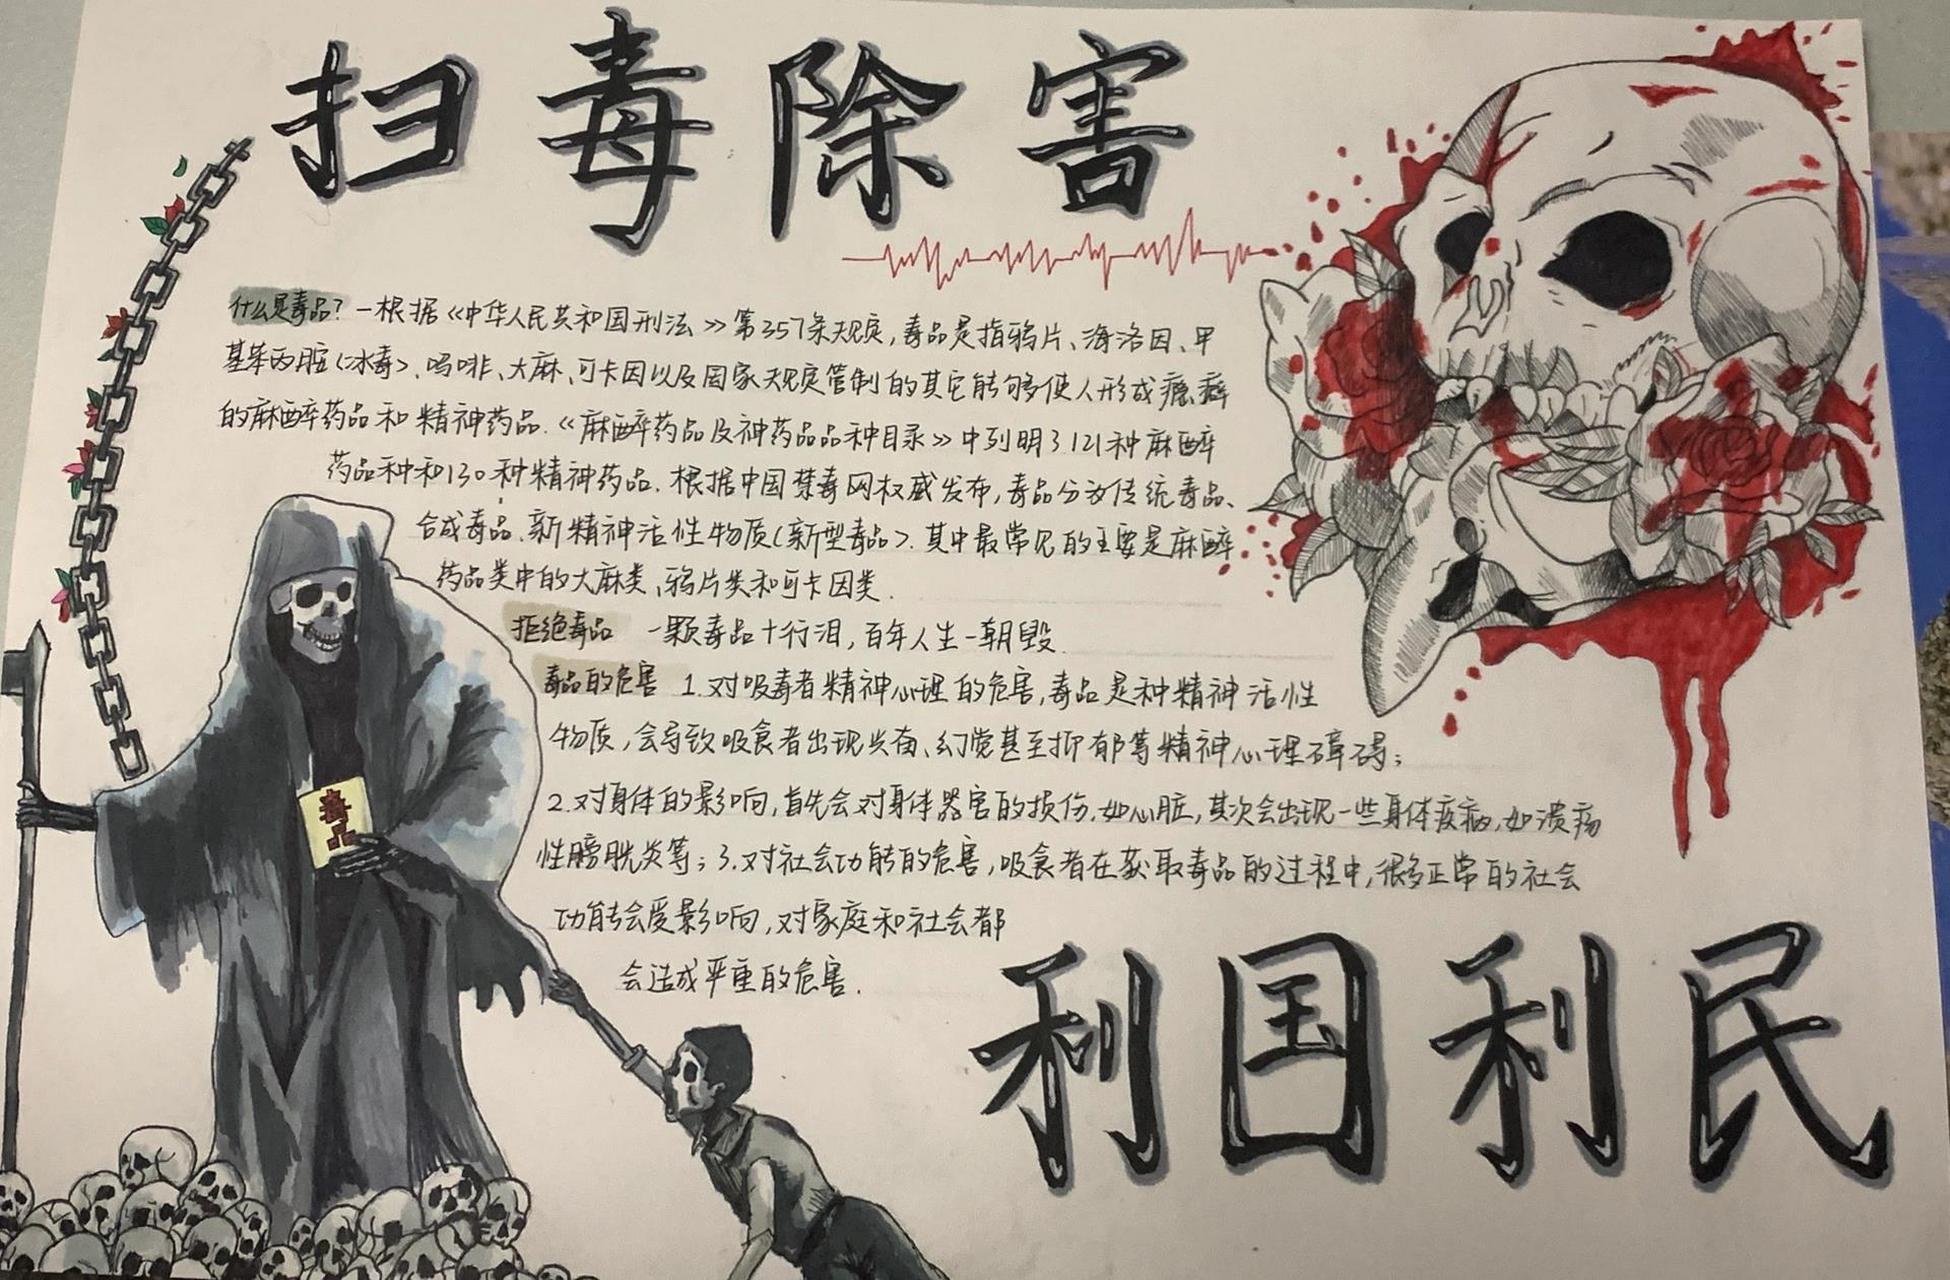 扫毒除害
什么是毒品？一根据《中华人民共和国刑法》第357条规定，毒品是指鸦片、海洛因、甲
基苯丙胺（冰毒）、吗啡、大麻、可卡因以及国家规定管制的其它能够使人形成瘾癖
的麻醉药品和精神药品.《麻醉药品及神药品品种目录》中列明了121种麻醉
药品种和130种精神药品.根据中国禁毒网权威发布，毒品分为传统毒品、
合成毒品、新精神活性物质（新型毒品）.其中最常见的主要是麻醉
药品类中的大麻类、鸦片类和可卡因类.
拒绝毒品 一颗毒品十行泪，百年人生一朝毁.
毒品的危害 1.对吸毒者精神心理的危害，毒品是种精神活性
物质，会导致吸食者出现兴奋、幻觉甚至抑郁等精神心理障碍；
2.对身体的影响，首先会对身体器官的损伤，如心脏，其次会出现一些身体疾病，如溃疡
性膀胱炎等；3.对社会功能的危害，吸食者在获取毒品的过程中，很多正常的社会
功能会受影响，对家庭和社会都
会造成严重的危害.
毒品
利国利民